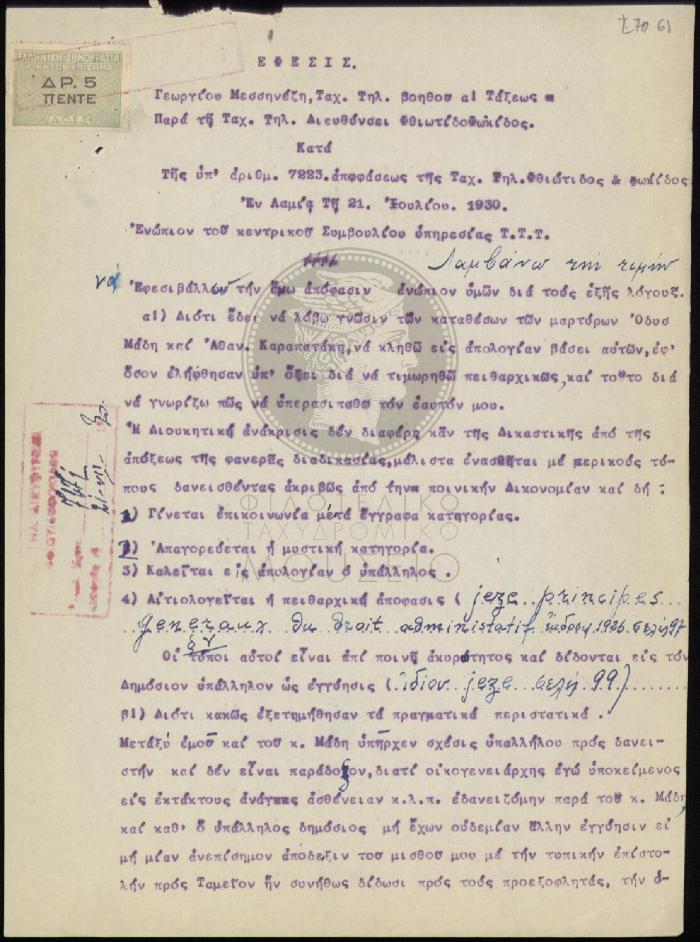 Σ70 61
ΕΛΛΗΝΙΚΗ ΔΗΜΟΚΡΑΤΙΑ
ΔΡ. 5
ΠΕΝΤΕ
ΕΦΕΣΙΣ.
Γεωργίου Μεσσηνέζη, Ταχ. Τηλ. βοηθου α! Τάξεως
Παρά τῇ Ταχ. Τηλ. Διευθύνσει Φθιωτιδοφωκίδος.
Κατά
Τῆς ὑπ' ἀριθμ. 7223. ἀπφφάσεως τῆς Ταχ. Τηλ. Φθιώτιδος & φωκίδος
Ἐν Λαμίᾳ Τῇ 21. Ἰουλίου. 1930.
Ἐνώπιον τοῦ κεντρικοῦ Συμβουλίου ὑπηρεσίας Τ.Τ.Τ.
Λαμβάνω τήν τιμήν
νά Ἐφεσιβάλλων τήν ἄνω ἀπόφασιν ἐνώπιον ὑμῶν διά τούς ἑξῆς λόγους.
α!) Διότι ἔδει νά λάβω γνῶσιν τῶν καταθέσων τῶν μαρτύρων Ὀδυσ
Μάδη καί Ἀθαν. Καραπατάκη, νά κληθῶ εἰς ἀπολογίαν βάσει αὐτῶν, ἐφ'
ὅσον ἐλήφθησαν ὑπ' ὄψει διά νά τιμωρηθῶ πειθαρχικῶς, καί το"το διά
νά γνωρίζω πῶς νά ὑπερασιπαθῶ τόν ἑαυτόν μου.
Ἡ Διουκητική ἀνάκρισις δέν διαφέρῃ κἄν τῆς Δικαστικῆς ἀπό τῆς
ἀπόξεως τῆς φανερᾶς διαδικασίας, μάλιστα ἐνασθεῖται μέ μερικούς τύ-
πους δανεισθέντας ἀκριβῶς ἀπό τηην ποινικήν Δικονομίαν καί δή :
1) Γίνεται ἐπικοινωνία μετά ἔγγραφα κατηγορίας.
2) Ἀπαγορεύεται ἡ μυστική κατηγορία.
3) Καλεῖται εἰς ἀπολογίαν ὁ ὑπάλληλος .
4) Αἰτιολογεῖται ἡ πειθαρχική ἀπόφασις ( jeze principes
generaux du droit administatif ἔκδοσις 1926 σελίς 97
Οἱ τύποι αὐτοί εἶναι ἐπί ποινῇ ἀκυρότητος καί δίδονται εἰς τόν
Δημόσιον ὑπάλληλον ὡς ἐγγύησις (ἴδιον jeze σελίς 99)
β!) Διότι κακῶς ἐξετημήθησαν τά πραγματικά περιστατικά .
Μεταξύ ἐμοῦ καί τοῦ κ. Μάδη ὑπῆρχεν σχέσις ὑπαλλήλου πρός δανει-
στήν καί δέν εἶναι παράδοξον, διατί οἰκογενειάρχης ἐγώ ὑποκείμενος
εἰς ἐκτάκτους ἀνάγκας ἀσθένειαν κ.λ.π. ἐδανειζόμην παρά τοῦ κ. Μάδη,
καί καθ' ὅ ὑπάλληλος δημόσιος μή ἔχων οὐδεμίαν ἄλλην ἐγγύησιν εἰ
μή μίαν ἀνεπίσημον ἀπόδειξιν τοῦ μισθοῦ μου μέ τήν τυπικήν ἐπιστο-
λήν πρός Ταμεῖον ἥν συνήθως δίδωσι πρός τούς προεξοφλητάς, τήν ὁ-
ΦΙΛΟΤΕΛΙΚΟ
ΤΑΧΥΔΡΟΜΙΚΟ
ΜΟΥΣΕΙΟ